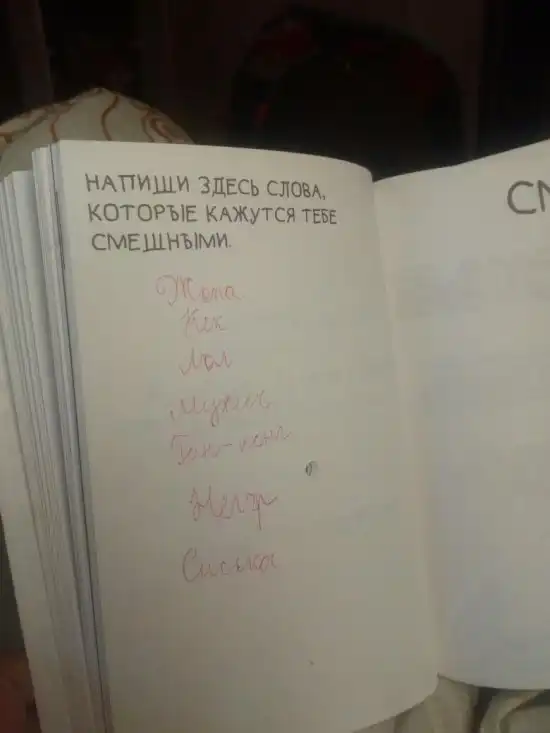 НАПИШИ ЗДЕСЬ СЛОВА,
КОТОРЫЕ КАЖУТСЯ ТЕБЕ
СМЕШНЫМИ.
Жопа
Кек
Лол
Мужик
Негр
Сиська